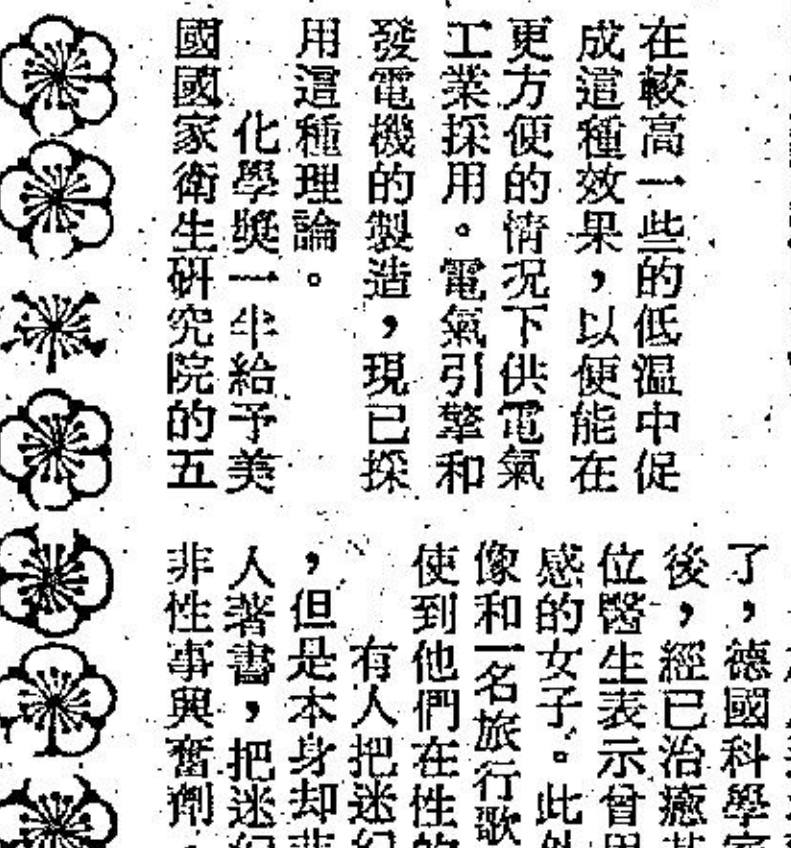 在較高一些的低温中促
成這種效果，以便能在
更方便的情况下供電氣
工業採用。電氣引擎和
發電機的製造，現已採
用這種理論。
化學獎一半給予美
國國家衛生研究院的五
了，德國科學家
後，經已治癒某
位醫生表示曾用
感的女子。此外
像和一名旅行歌
使到他們在性的
有人把迷幻
，但是本身却非
人著書，把迷幻
非性事興奮劑。